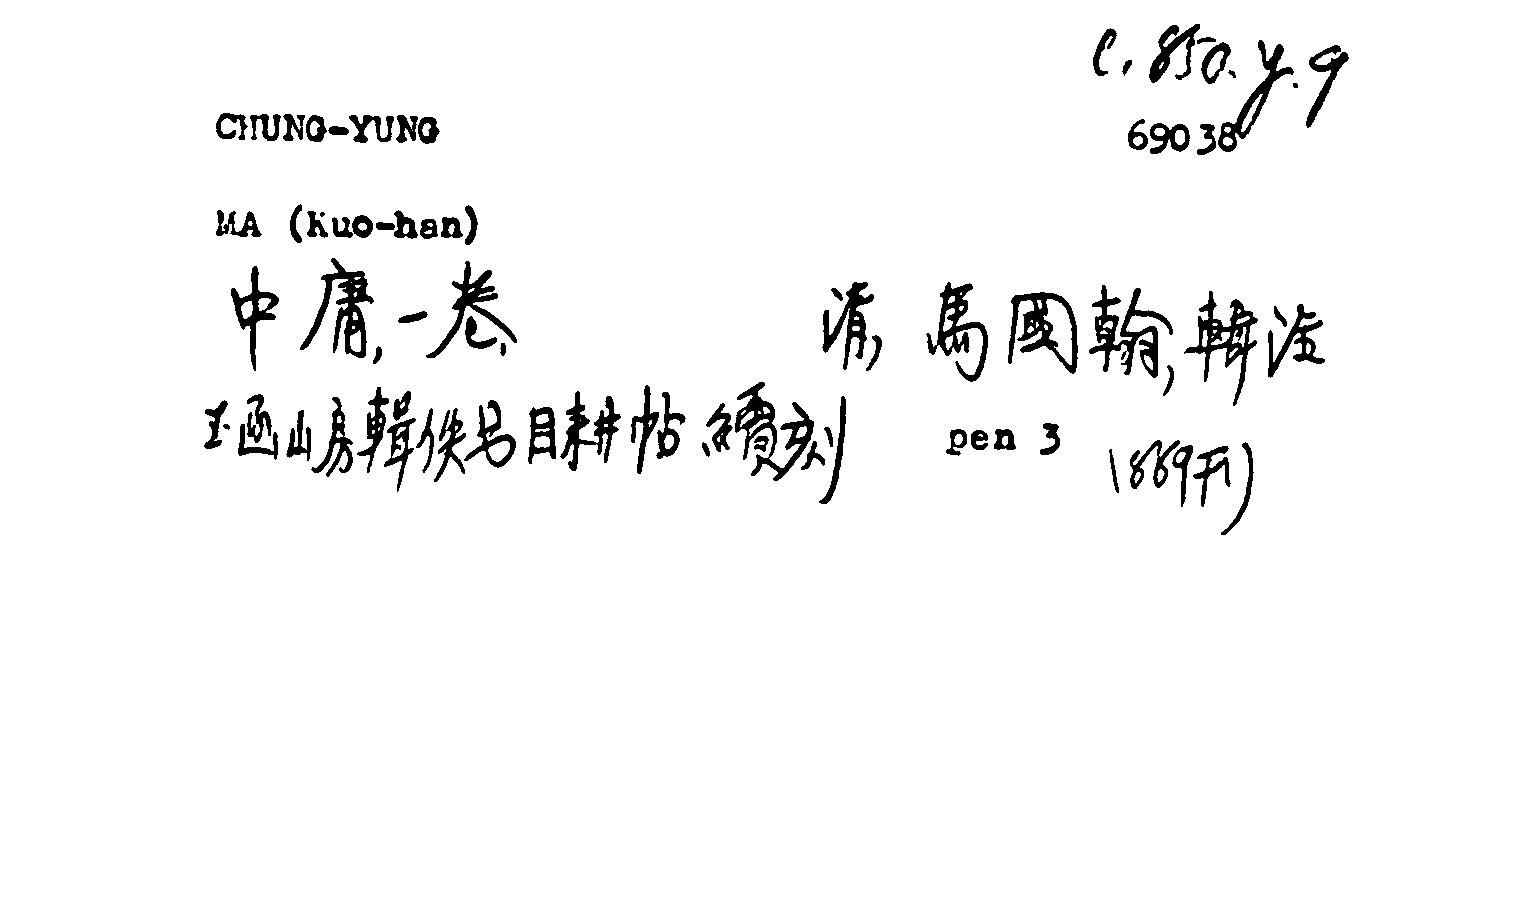 c. 850. y. 9
CHUNG-YUNG 69038
MA (Kuo-han)
中庸, 一卷, 清, 馬國翰, 輯注
玉函山房輯佚書目耕帖續刻 pen 3 (1889刊)